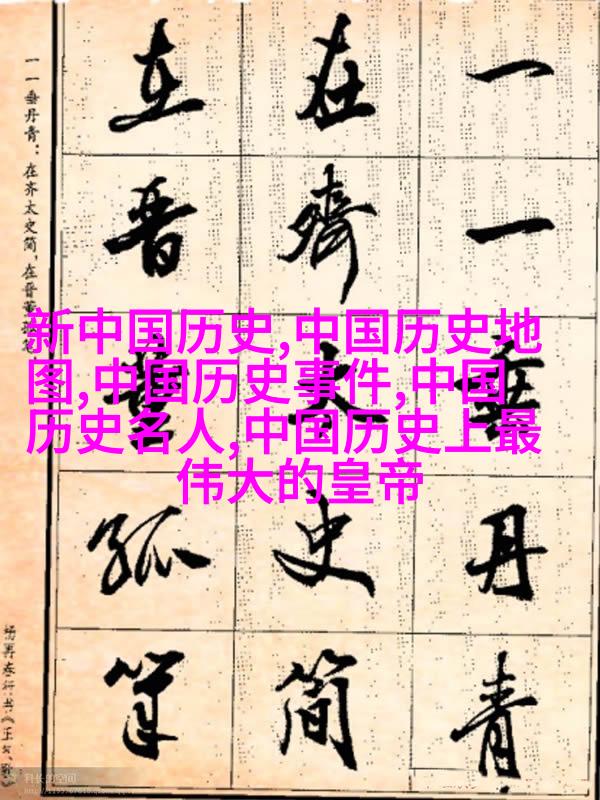 新中国历史,中国历史地
图,中国历史事件,中国
历史名人,中国历史上最
伟大的皇帝
一一垂丹青
在齊太史简
在晋董狐筆
一一垂丹青：在齐太史简，在晋董
杨再春行书《正气
科长的空间